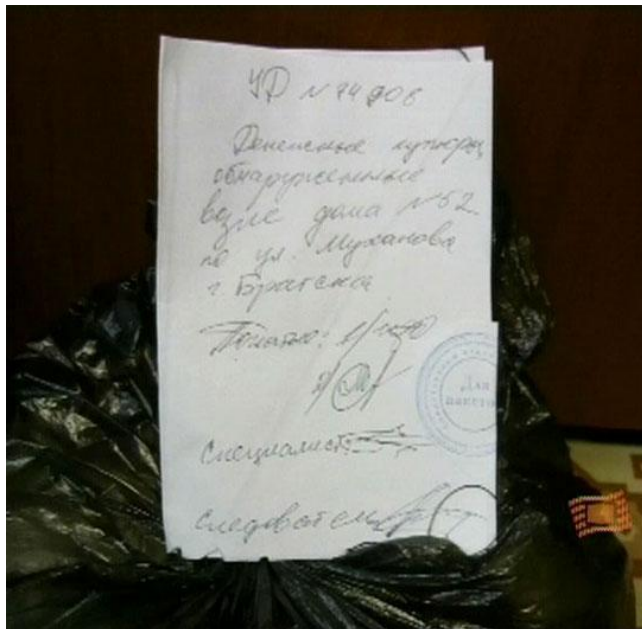 УД № 74906
Денежные купюры
обнаруженные
возле дома № 52
по ул. Муханова
г. Братска
Понятые: 1/
2/
Специалист:
Следователь
Для
пакетов